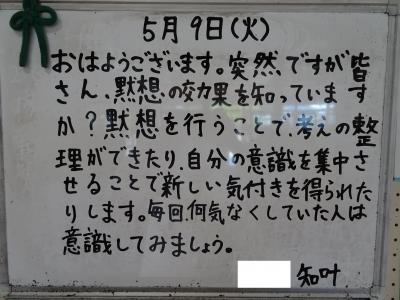 5月9日(火)
おはようございます。突然、ですが皆
さん、黙想、の効果を知っています
か?黙想を行うことで、考えの整
理ができたり、自分の意識を集中さ
せることで新しい気付きを得られた
りします。毎回、何気なくしていた人は
意識してみましょう。
知叶